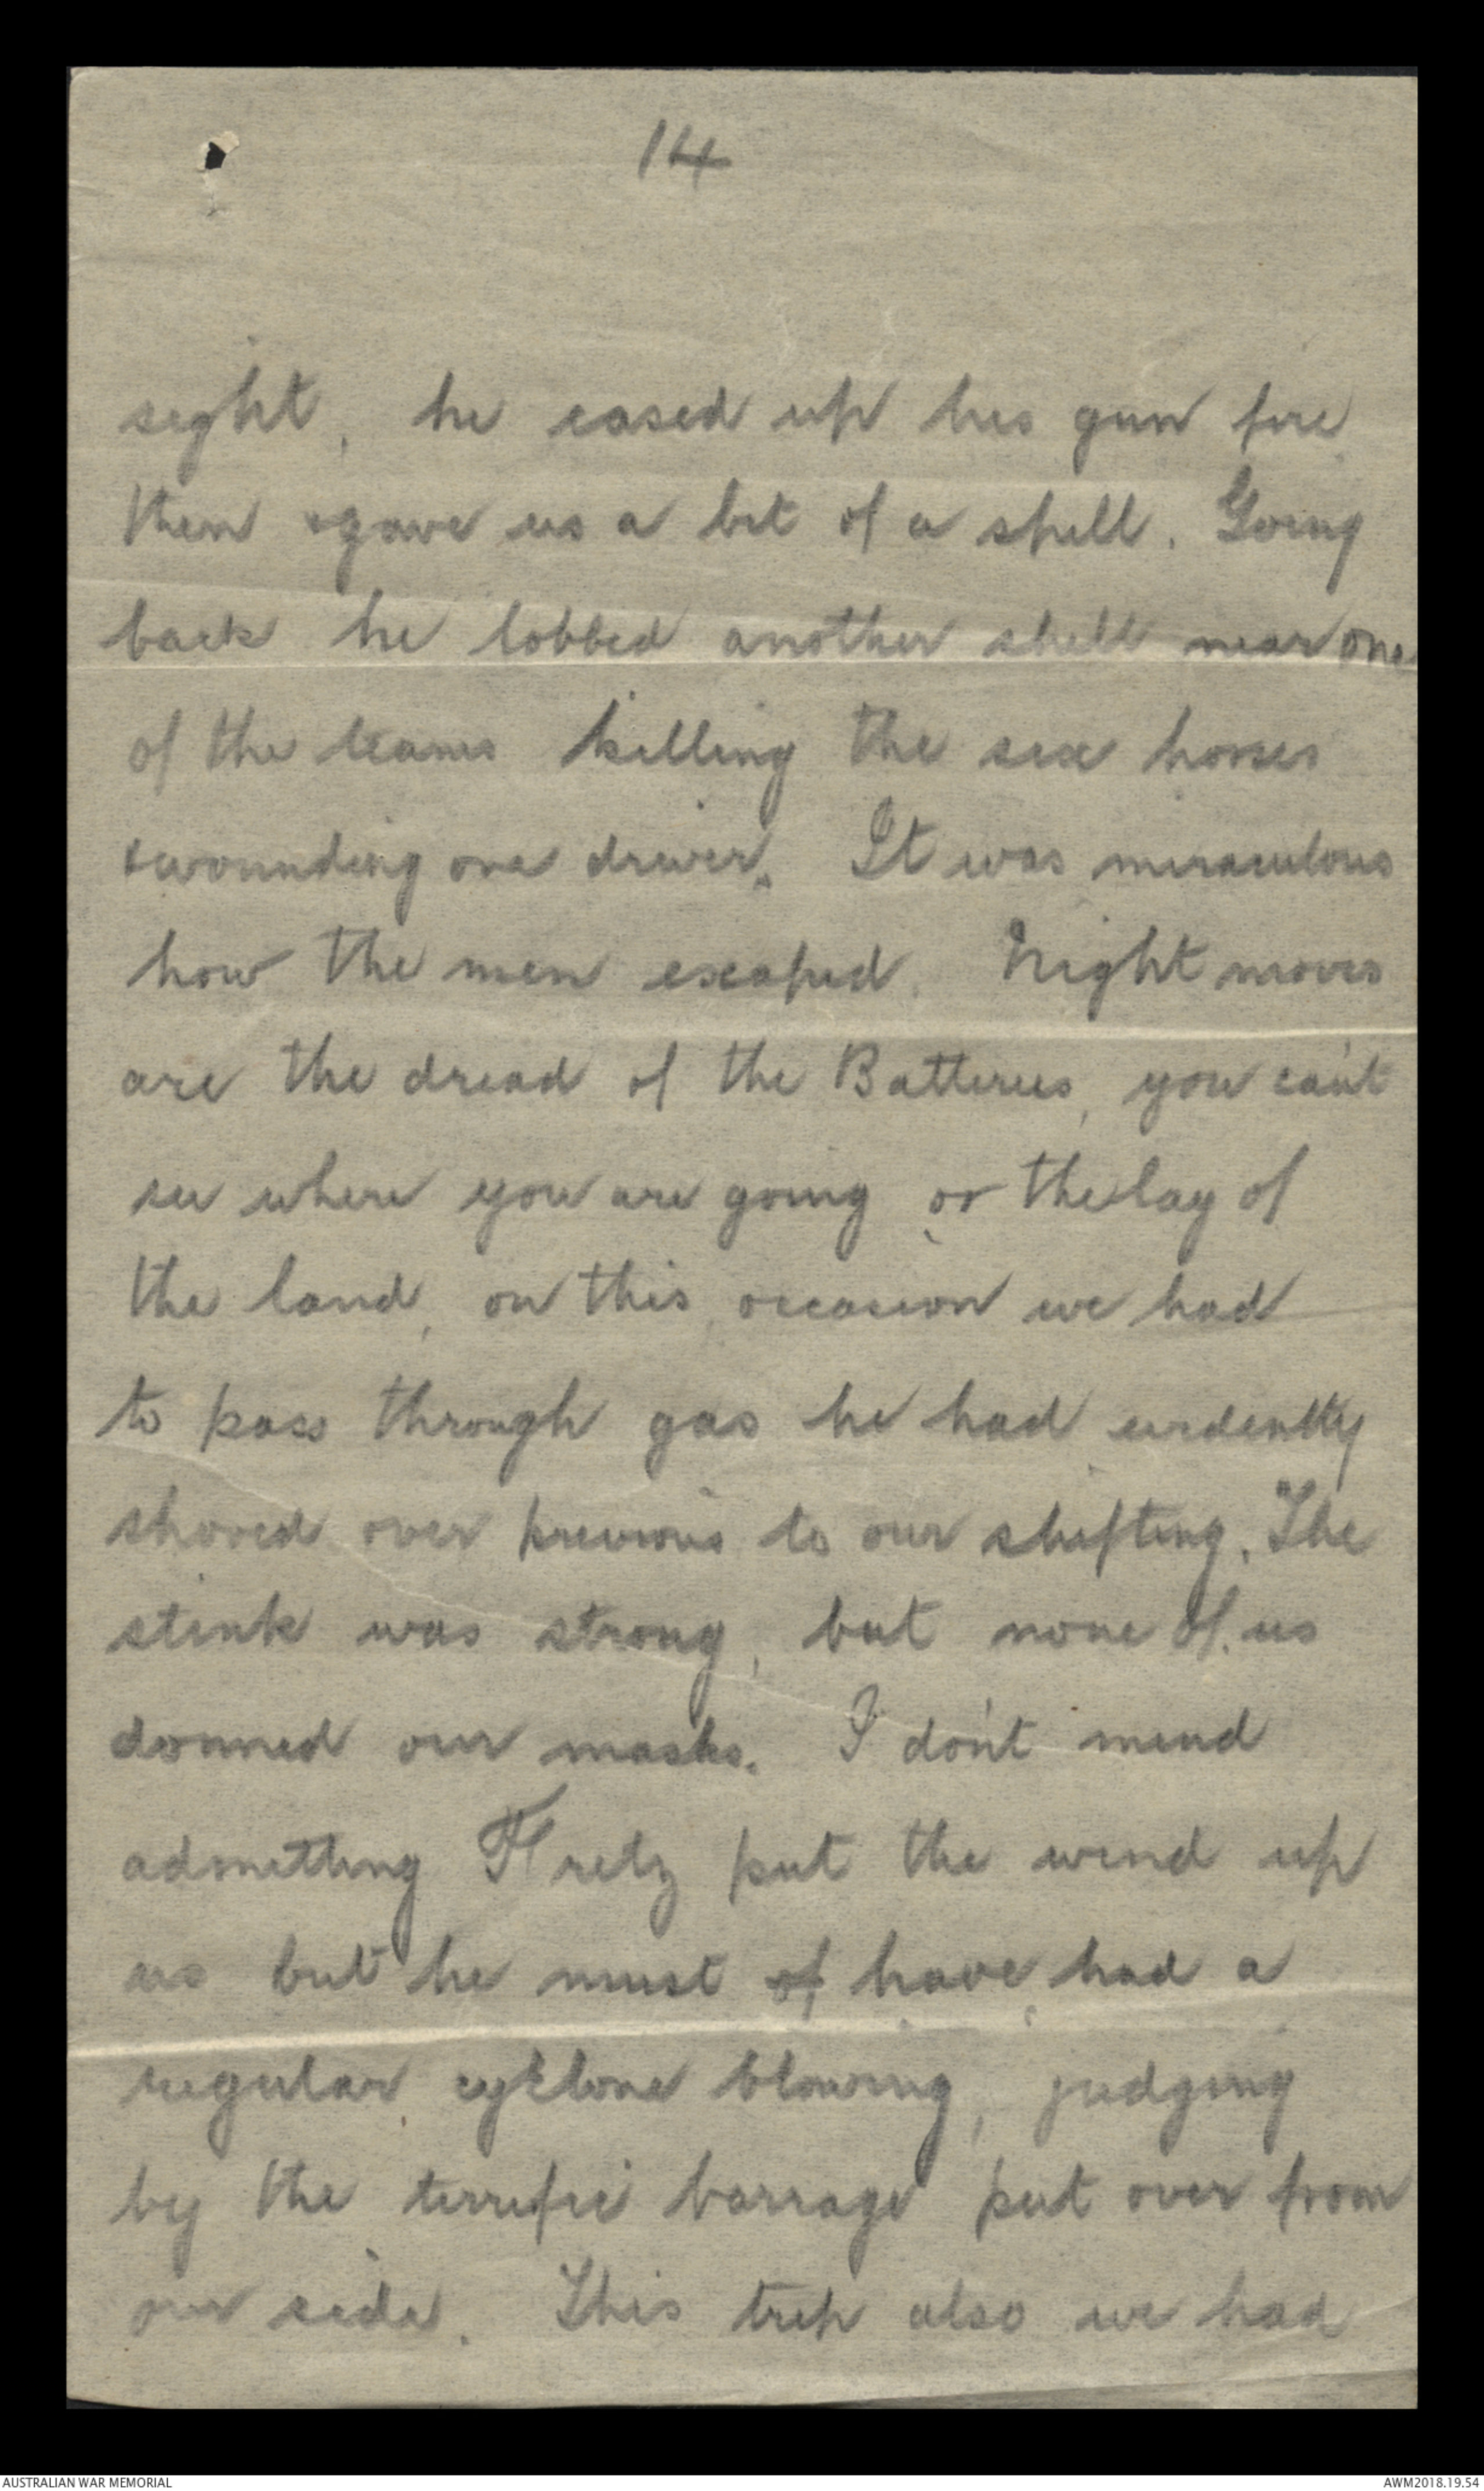 14
sight, he eased up his gun fire
then & gave us a bit of a spell. Going
back he lobbed another shell near one
of the teams killing the six horses
& wounding one driver. It was miraculous
how the men escaped. Night moves
are the dread of the Batteries, you can't
see where you are going or the lay of
the land, on this occasion we had
to pass through gas he had evidently
shoved over previous to our shifting. The
stink was strong, but none of us
donned our masks. I don't mind
admitting Fritz put the wind up
us but he must of have had a
regular cyclone blowing, judging
by the terrific barrage put over from
our side. This trip also we had
AUSTRALIAN WAR MEMORIAL
AWM2018.19.54